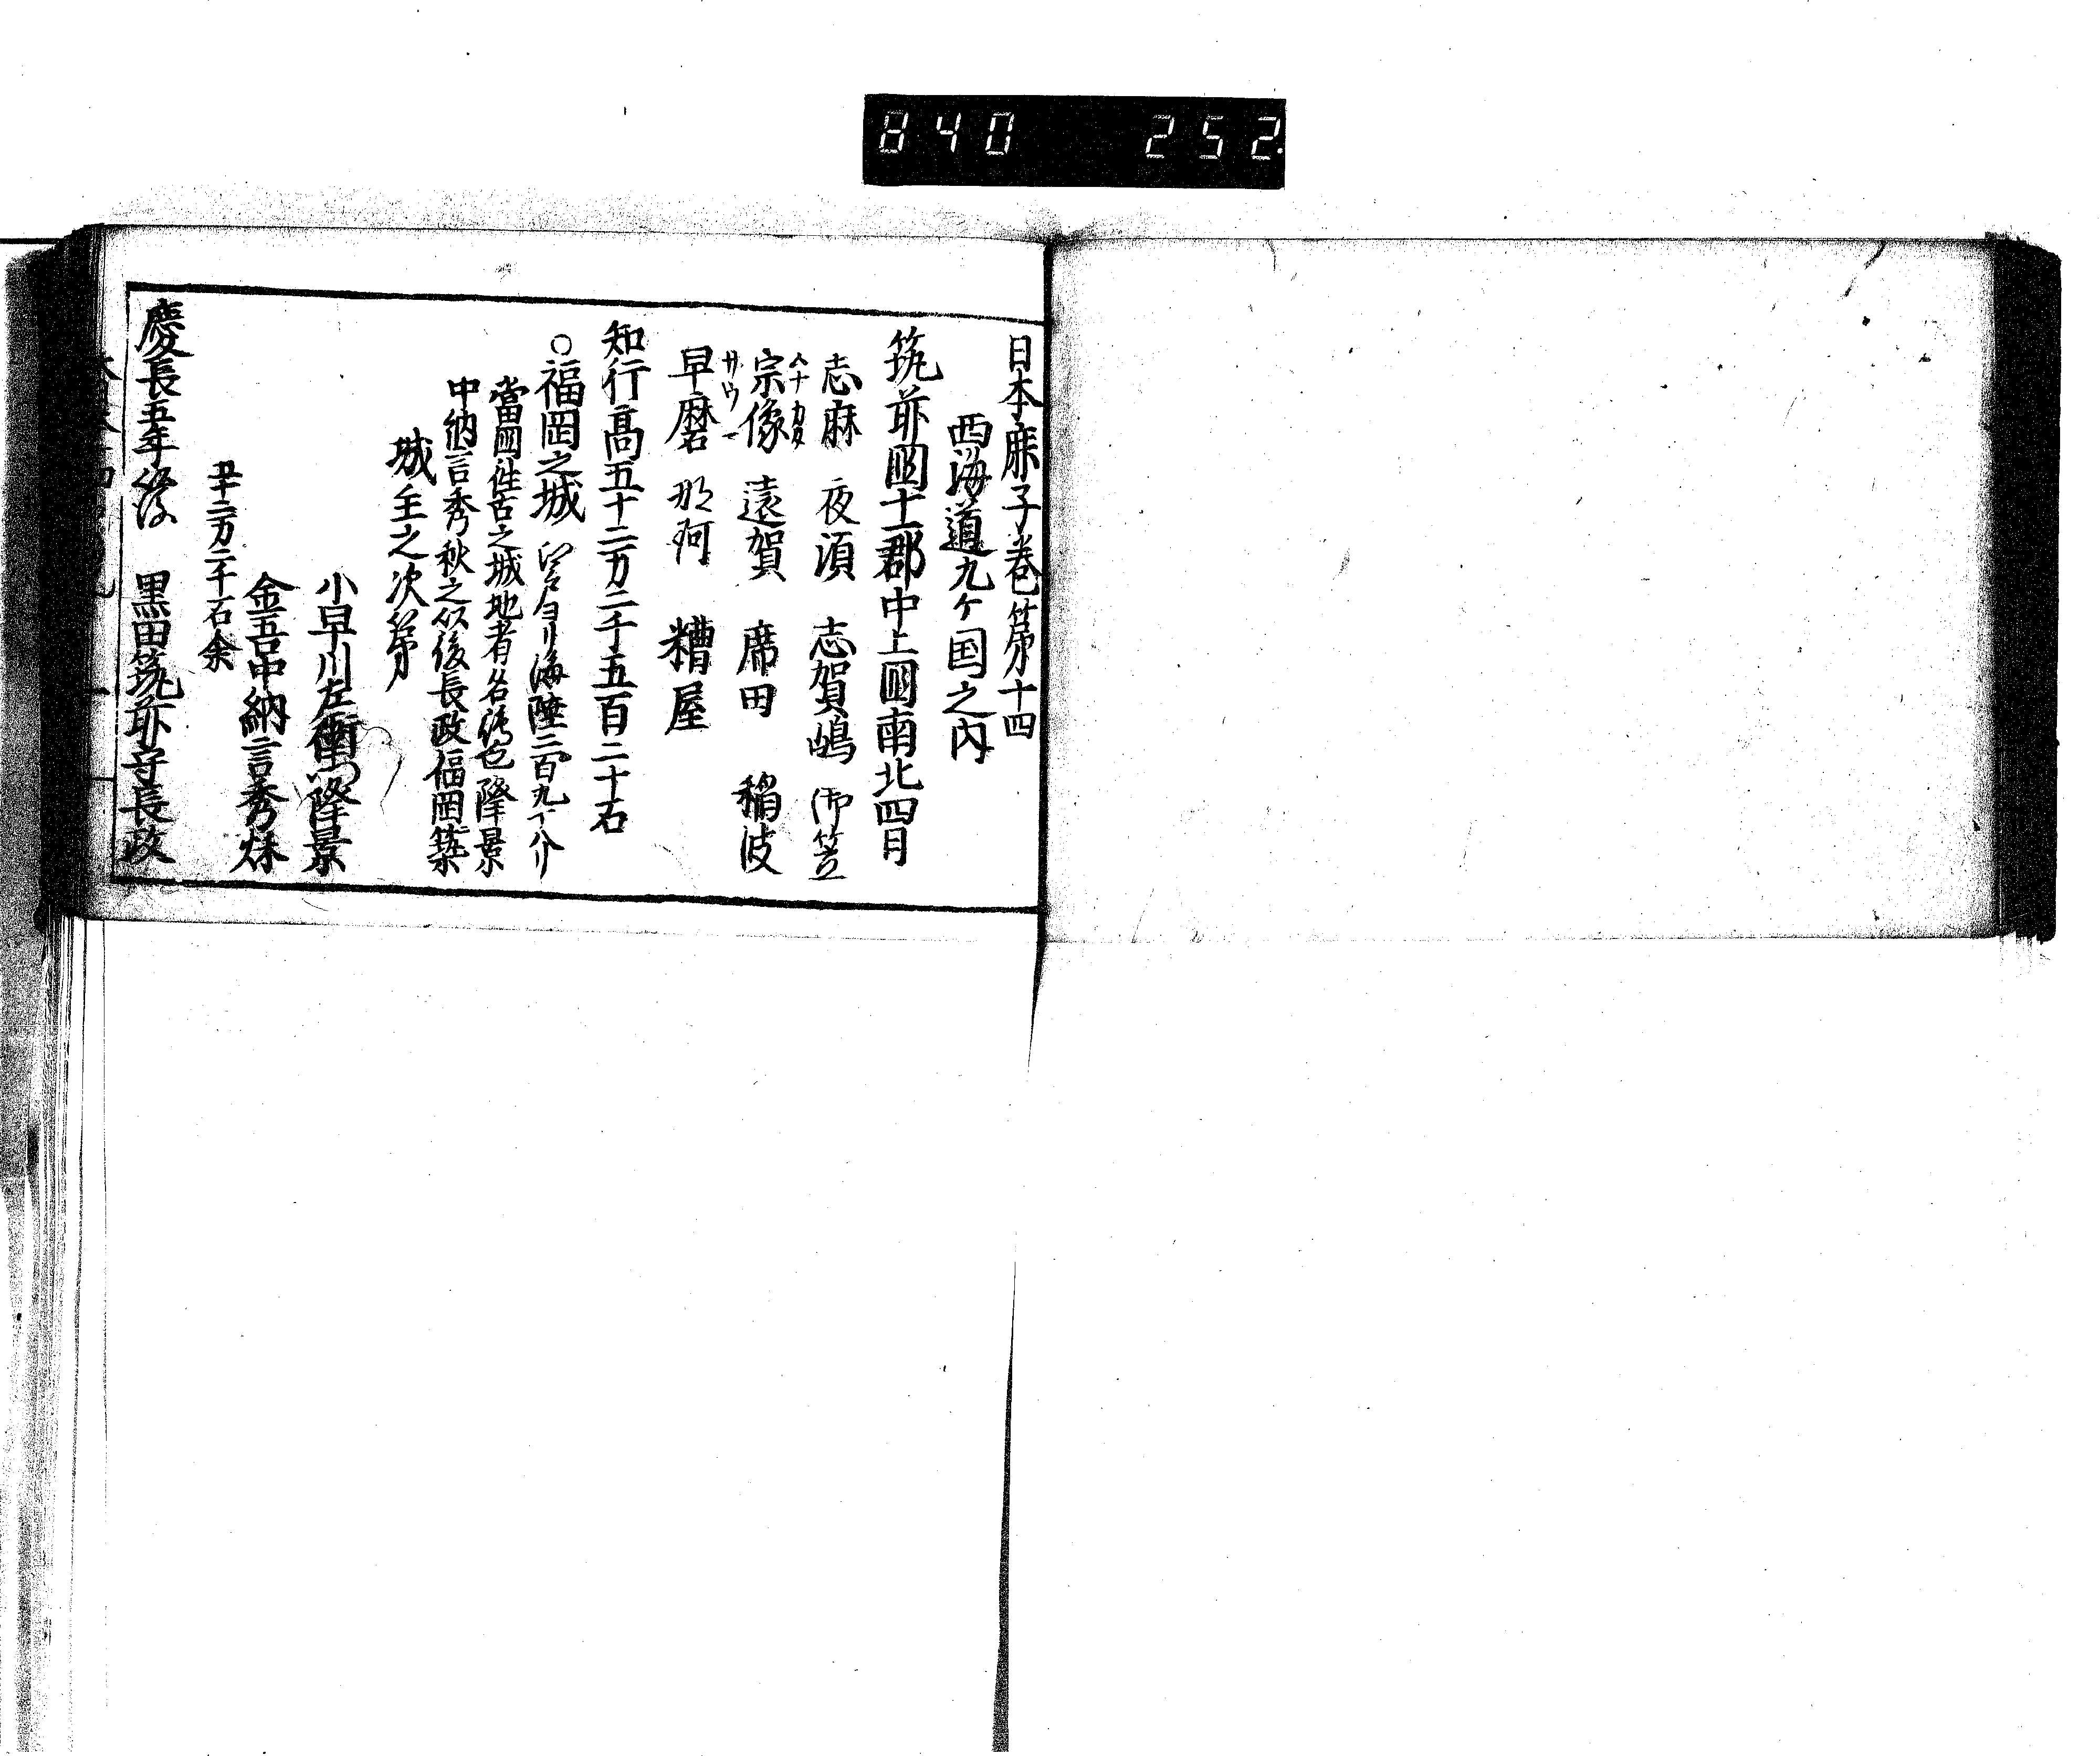 840 252
日本鹿子卷第十四
西海道九ケ国之内
筑前國十一郡中上國南北四日
志麻 夜須 志賀嶋 御笠
宗像 遠賀 席田 稲波
早磨 那珂 糟屋
知行高五十二万二千五百二十石
○福岡之城 江戸ヨリ海陸三百九十八リ
當國往古之城地者名嶋也隆景
中納言秀秋之以後長政福岡築
城主之次第
小早川左衛門隆景
金吾中納言秀秋
五十二万二千石余
慶長五年後 黒田筑前守長政